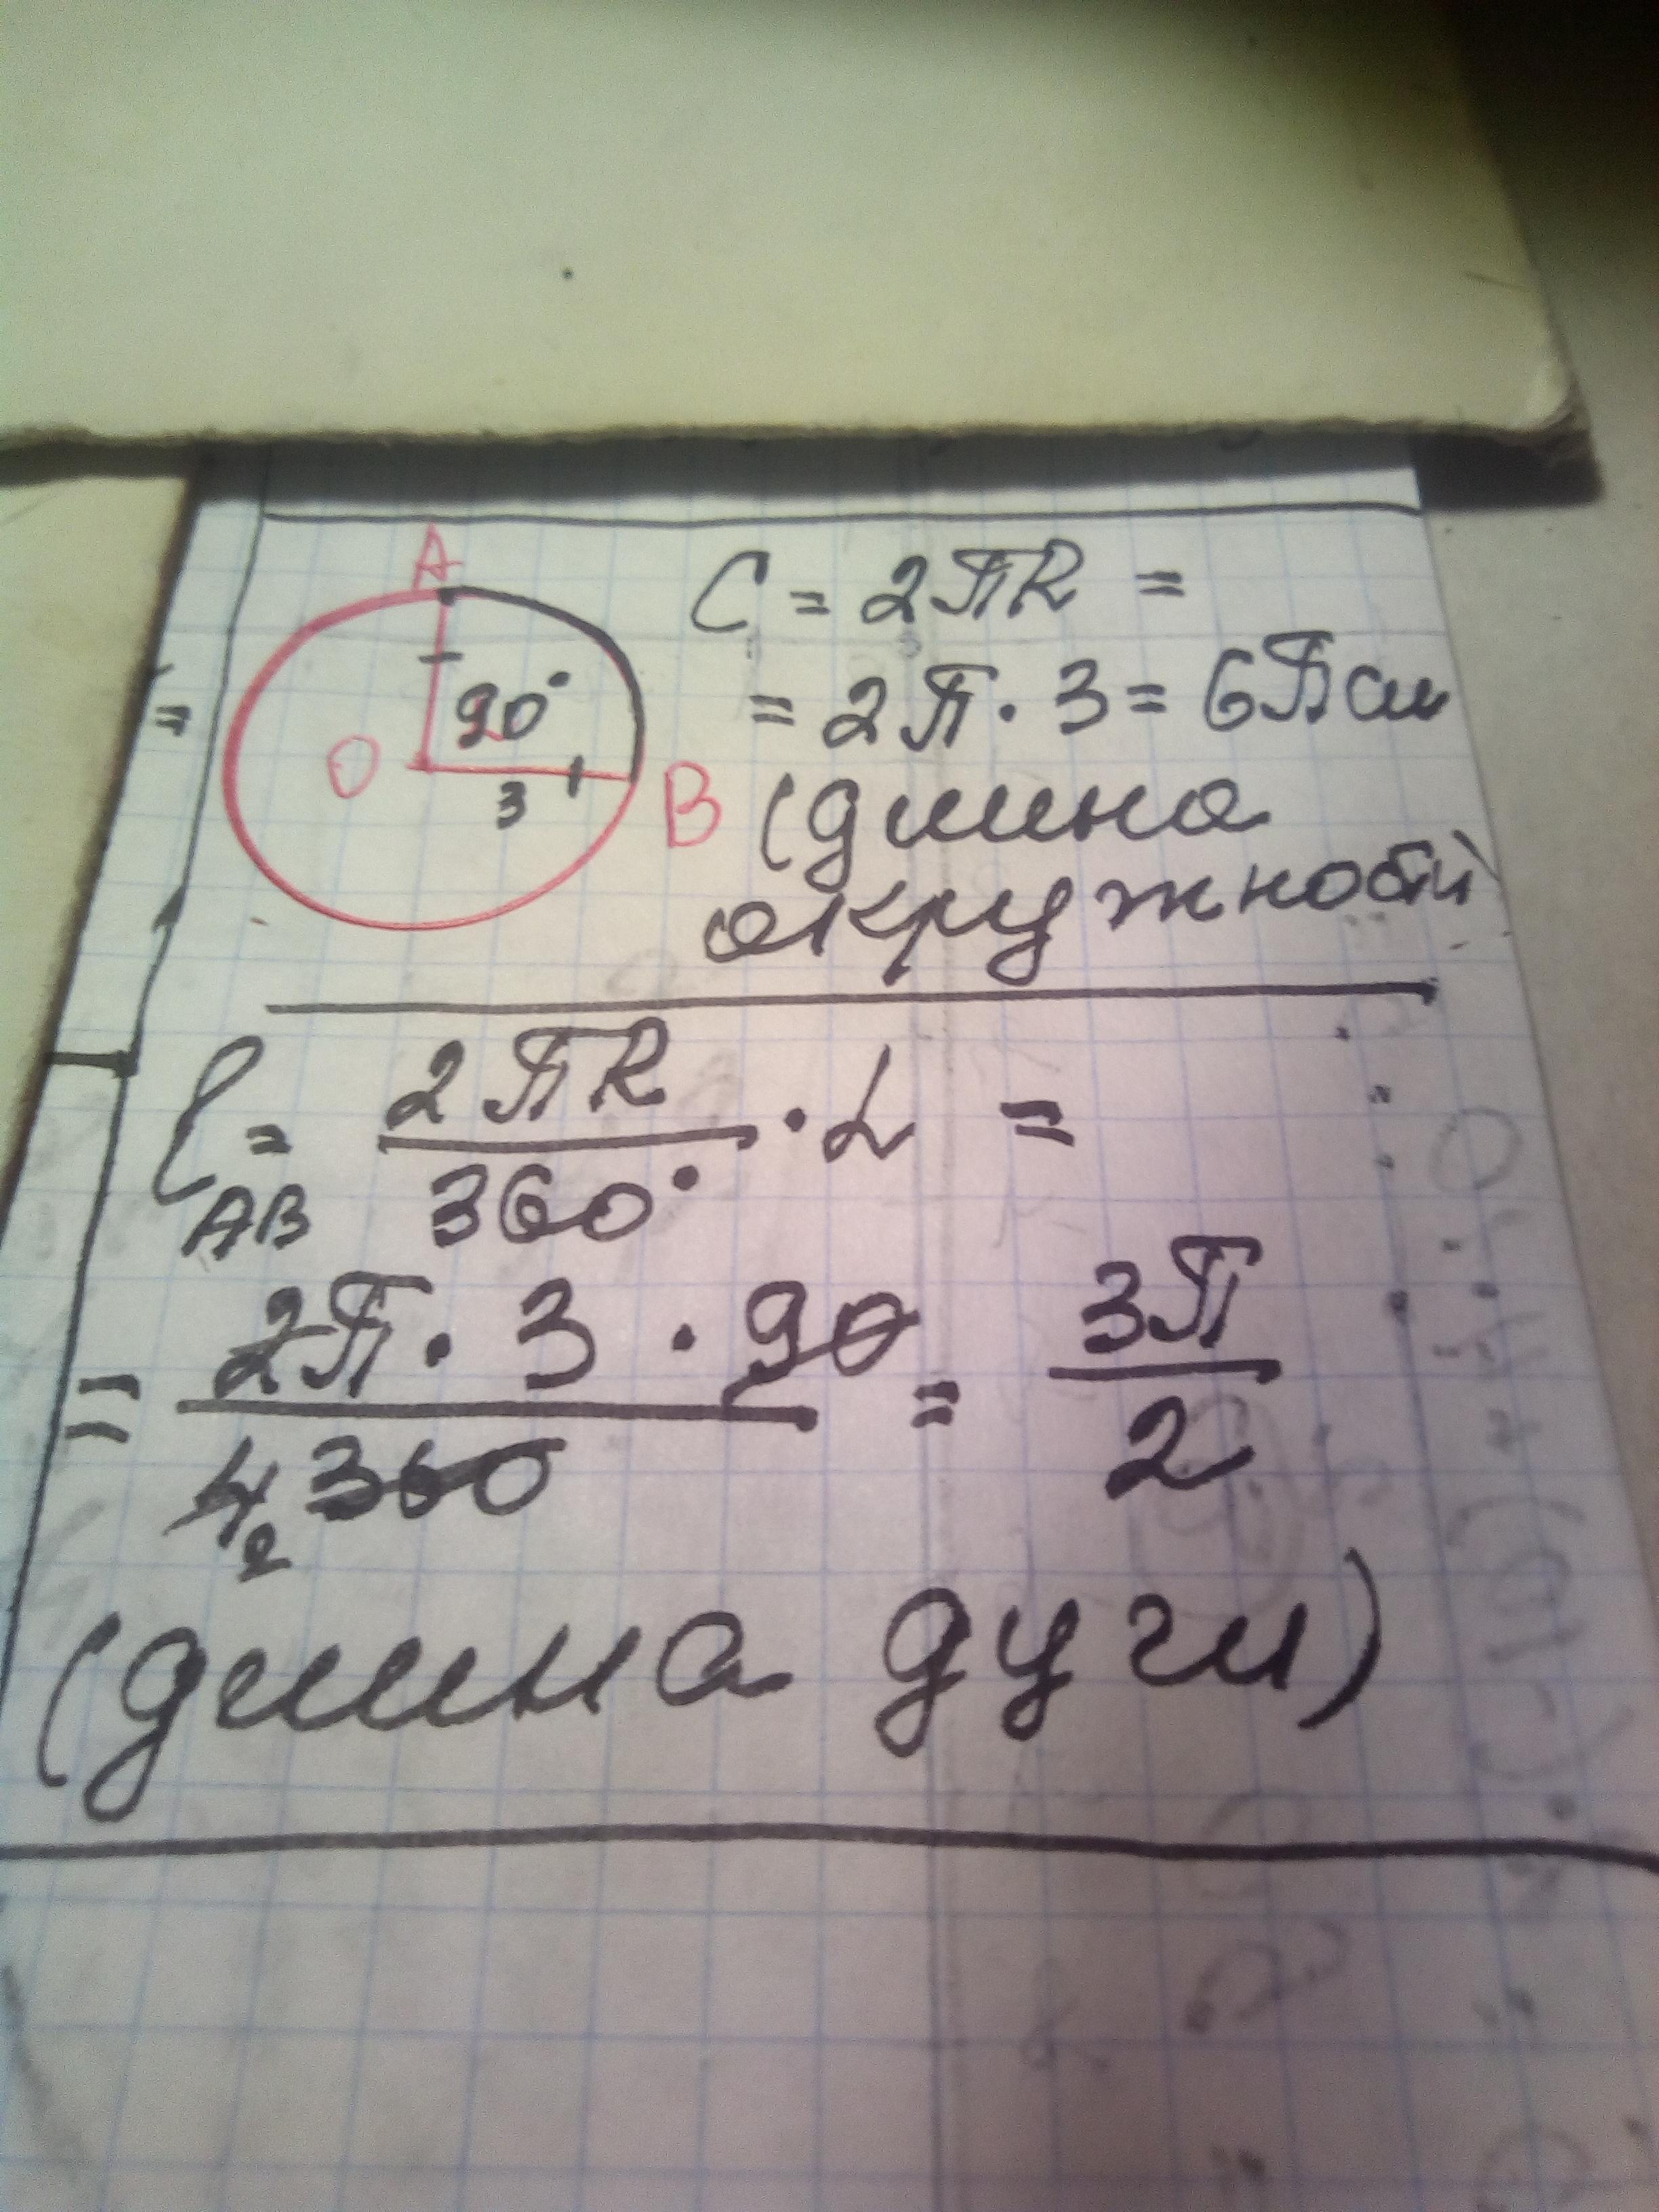 A
90°
O
3
B
C = 2πR =
= 2π · 3 = 6π см
(длина
окружности)
=
ℓ AB = 2πR / 360° · L =
= 2π · 3 · 90 / 4 2 360 = 3π / 2
(длина дуги)